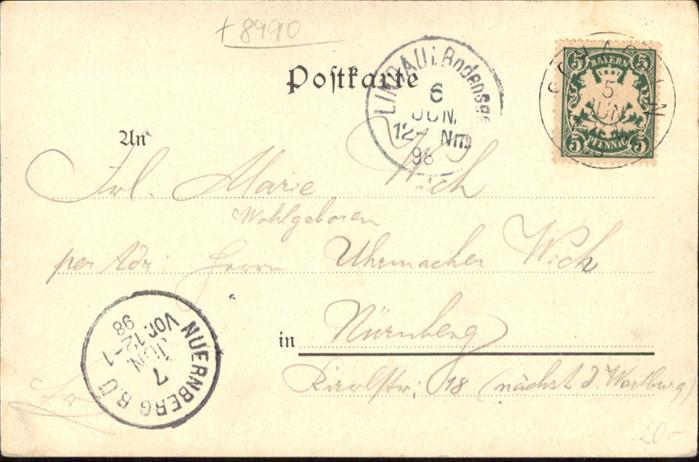 +8990
Postkarte
LINDAU i. Bodensee
6
JUN.
12-1 Nm
98
5 BAYERN 5
5 PFENNIG 5
5
JUN
An
Frl. Marie Wich
Wohlgeboren
per Adr: Herrn Uhrmacher Wich
in Nürnberg
18 (nächst d. Wartburg)
NUERNBERG B.O
7
JUN.
Vor. 12-1
98
20-